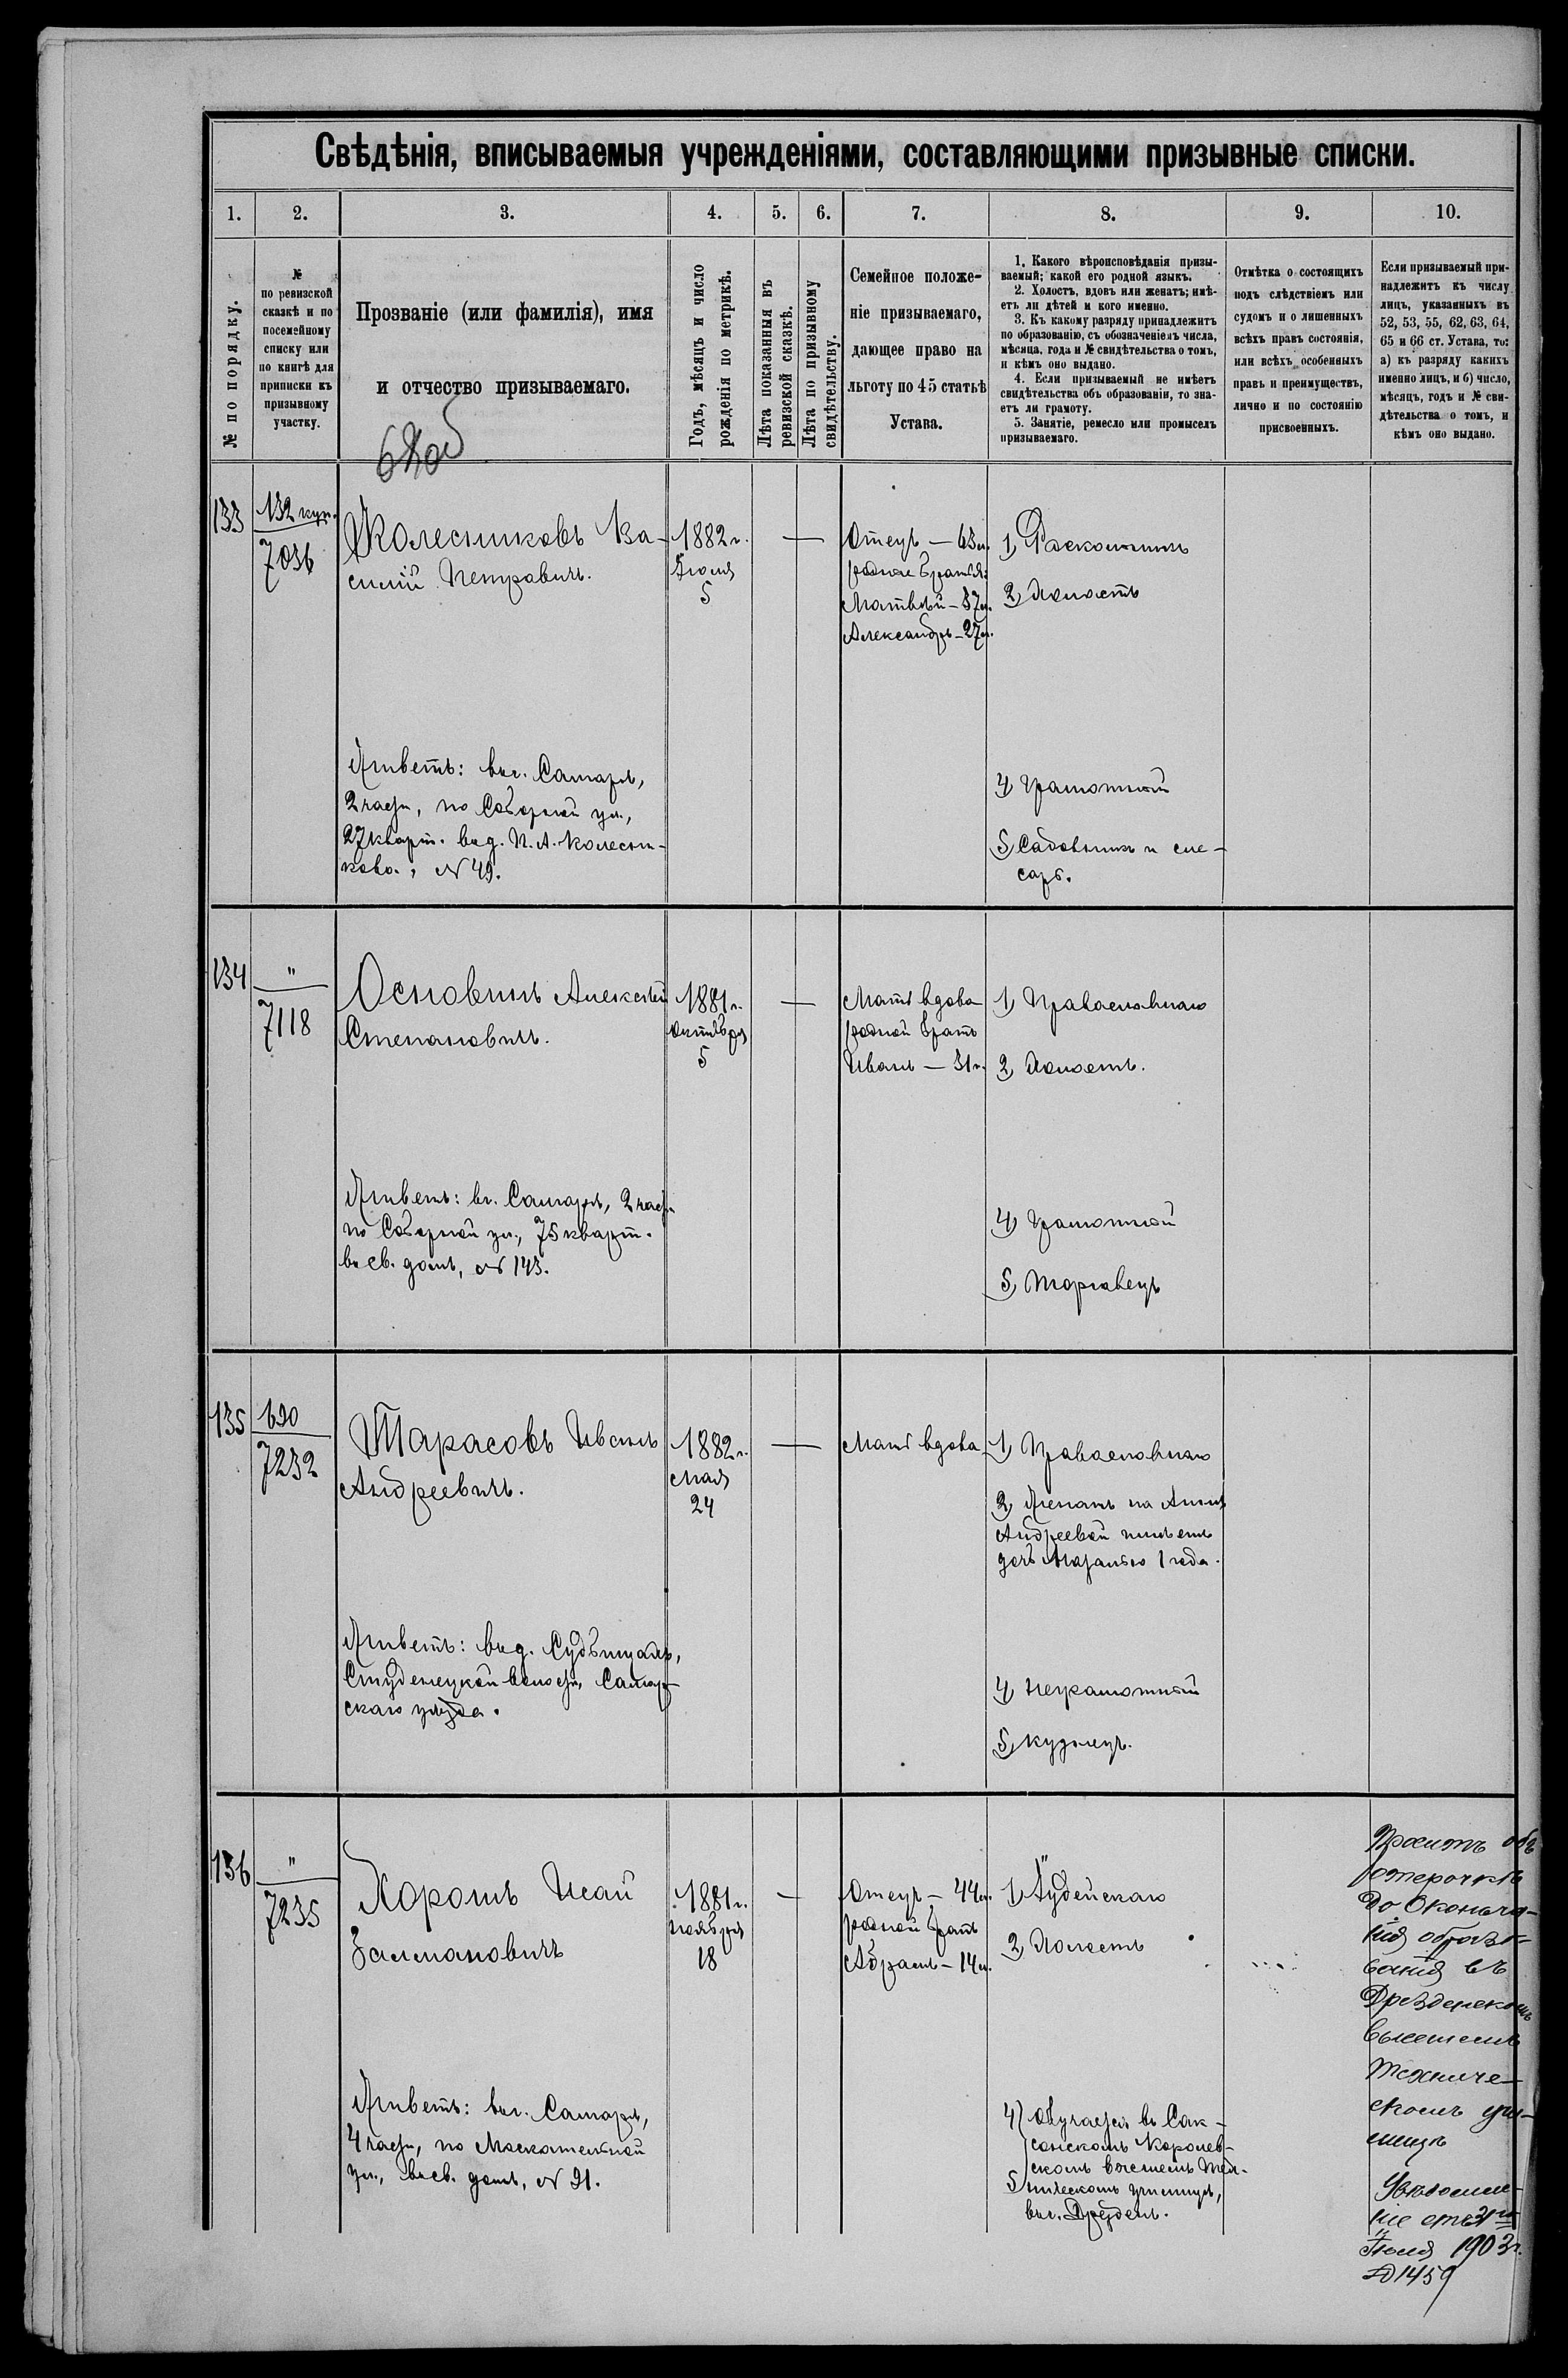 Свѣдѣнія, вписываемыя учрежденіями, составляющими призывные списки.
1. 2. 3. 4. 5. 6. 7. 8. 9. 10.
№ по порядку.
№
по ревизской
сказкѣ и по
посемейному
списку или
по книгѣ для
приписки къ
призывному
участку.
Прозваніе (или фамилія), имя
и отчество призываемаго.
Годъ, мѣсяцъ и число
рожденія по метрикѣ.
Лѣта показанныя въ
ревизской сказкѣ.
Лѣта по призывному
свидѣтельству.
Семейное положе-
ніе призываемаго,
дающее право на
льготу по 45 статьѣ
Устава.
1. Какого вѣроисповѣданія призы-
ваемый; какой его родной языкъ.
2. Холостъ, вдовъ или женатъ; имѣ-
етъ ли дѣтей и кого именно.
3. Къ какому разряду принадлежитъ
по образованію, съ обозначеніемъ числа,
мѣсяца, года и № свидѣтельства о томъ,
и кѣмъ оно выдано.
4. Если призываемый не имѣетъ
свидѣтельства объ образованіи, то зна-
етъ ли грамоту.
5. Занятіе, ремесло или промыселъ
призываемаго.
Отмѣтка о состоящихъ
подъ слѣдствіемъ или
судомъ и о лишенныхъ
всѣхъ правъ состоянія,
или всѣхъ особенныхъ
правъ и преимуществъ,
лично и по состоянію
присвоенныхъ.
Если призываемый при-
надлежитъ къ числу
лицъ, указанныхъ въ
52, 53, 55, 62, 63, 64,
65 и 66 ст. Устава, то:
а) къ разряду какихъ
именно лицъ, и б) число,
мѣсяцъ, годъ и № сви-
дѣтельства о томъ, и
кѣмъ оно выдано.
133
132 куп.
7036
Колесниковъ Ва-
силій Петровичъ.
1882 г.
Іюля
5
—
Отецъ — 63 л.
родные братья:
Матвѣй — 37 л.
Александръ — 27 л.
1) Раскольникъ
2) Холостъ
Живетъ: въ г. Самарѣ,
2 части, по Соборной ул.,
27 кварт. въ д. П. А. Колесни-
кова, № 49.
4) Грамотный
5) Садовникъ и сле-
сарь.
134
"
7118
Основинъ Алексѣй
Степановичъ.
1881 г.
Октября
5
—
Мать вдова
родной братъ
Иванъ — 31 г.
1) Православнаго
2) Холостъ.
Живетъ: въ г. Самарѣ, 2 части
по Соборной ул., 75 кварт.
въ св. домѣ, № 143.
4) Грамотный
5) Торговецъ
135
690
7232
Тарасовъ Иванъ
Андреевичъ.
1882 г.
Мая
24
—
Мать вдова
1) Православнаго
2) Женатъ на Аннѣ
Андреевой имѣетъ
дочь 1 года.
Живетъ: въ д.
Студенецкой волости, Самар-
скаго уѣзда.
4) Неграмотный
5) Кузнецъ.
136
"
7235
Хорошъ Исай
Залмановичъ
1881 г.
ноября
18
—
Отецъ — 44 л.
родной братъ
Абрамъ — 14 л.
1) Іудейскаго
2) Холостъ
Живетъ: въ г. Самарѣ,
4 части, по Москательной
ул., въ св. домѣ, № 21.
4) Обучается въ Сак-
сонскомъ Королев-
скомъ высшемъ Тех-
5) ническомъ училищѣ,
въ г. Дрезденѣ.
Проситъ объ
отсрочкѣ
до окончa-
нія образо-
ванія въ
Дрезденскомъ
высшемъ
техниче-
скомъ учи-
лищѣ
Іюля 1903 г.
№ 1459